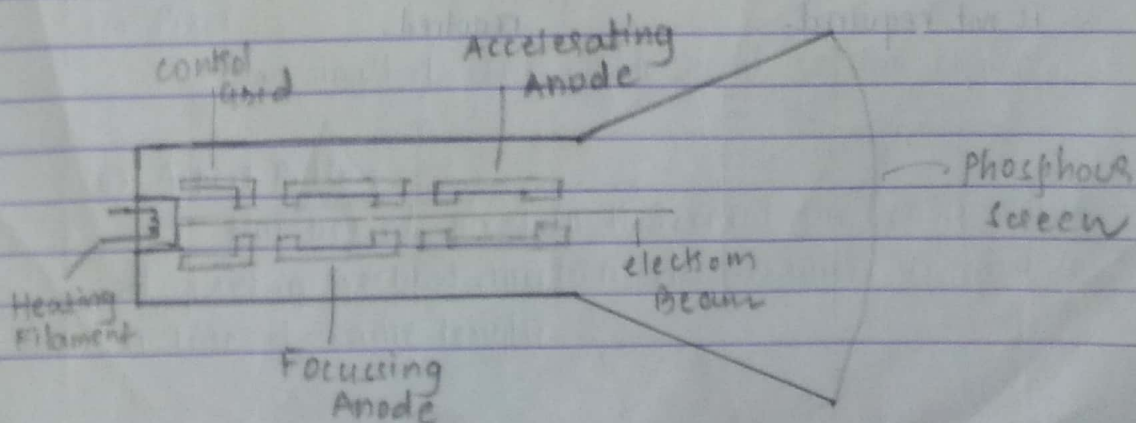 control
Grid
Accelerating
Anode
Phosphous
screen
electrom
Beam
Heating
Filament
Focussing
Anode